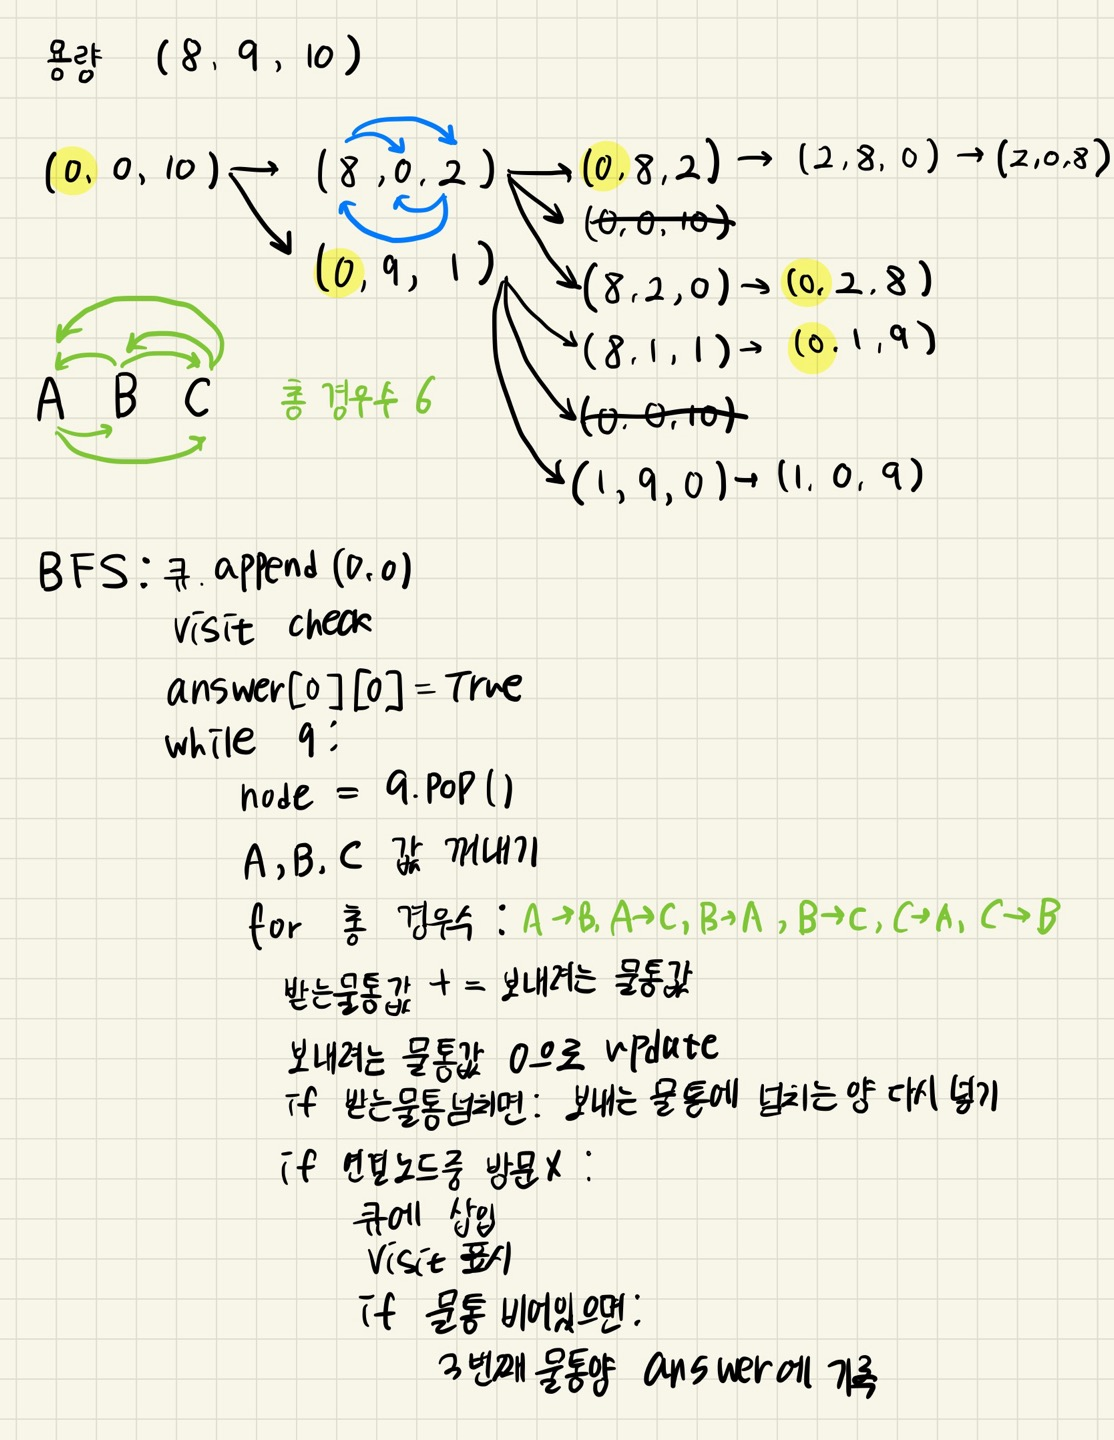 용량 (8, 9, 10)
(0, 0, 10) → (8, 0, 2) → (0, 8, 2) → (2, 8, 0) → (2, 0, 8)
(0, 0, 10)
(0, 9, 1)
(8, 2, 0) → (0, 2, 8)
(8, 1, 1) → (0, 1, 9)
A B C 총 경우수 6
(0, 0, 10)
(1, 9, 0) → (1, 0, 9)
BFS: 큐.append(0,0)
visit check
answer[0][0] = True
while q:
node = q.pop()
A, B, C 값 꺼내기
for 총 경우수 : A→B, A→C, B→A, B→C, C→A, C→B
받는물통값 += 보내려는 물통값
보내려는 물통값 0으로 update
if 받는물통넘치면: 보내는 물통에 넘치는 양 다시 넣기
if 연결노드중 방문X :
큐에 삽입
visit 표시
if 물통 비어있으면:
3번째 물통양 answer에 기록